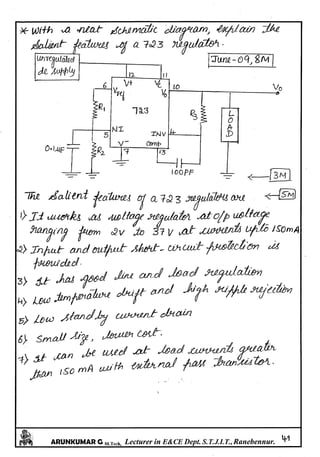 * With a neat schematic diagram, explain the
salient features of a 723 regulator.
unregulated
dc supply
June-09, 8M
12 11
V+ Vc
6 10 Vo
Vref Vo
R1 723 R3 LOAD
NI INV 4
5
V- comp
0.1µF R2 7 13
100PF
3M
The salient features of a 723 regulators are
5M
1) It works as voltage regulator at o/p voltage
ranging from 2V to 37V at currents upto 150mA
2) Input and output short-circuit protection is
provided.
3) It has good line and load regulation
4) Low temperature drift and high ripple rejection
5) Low standby current drain
6) Small size, lower cost.
7) It can be used at load currents greater
than 150 mA with external pass transistor.
ARUNKUMAR G M.Tech, Lecturer in E&CE Dept. S.T.J.I.T., Ranebennur. 41